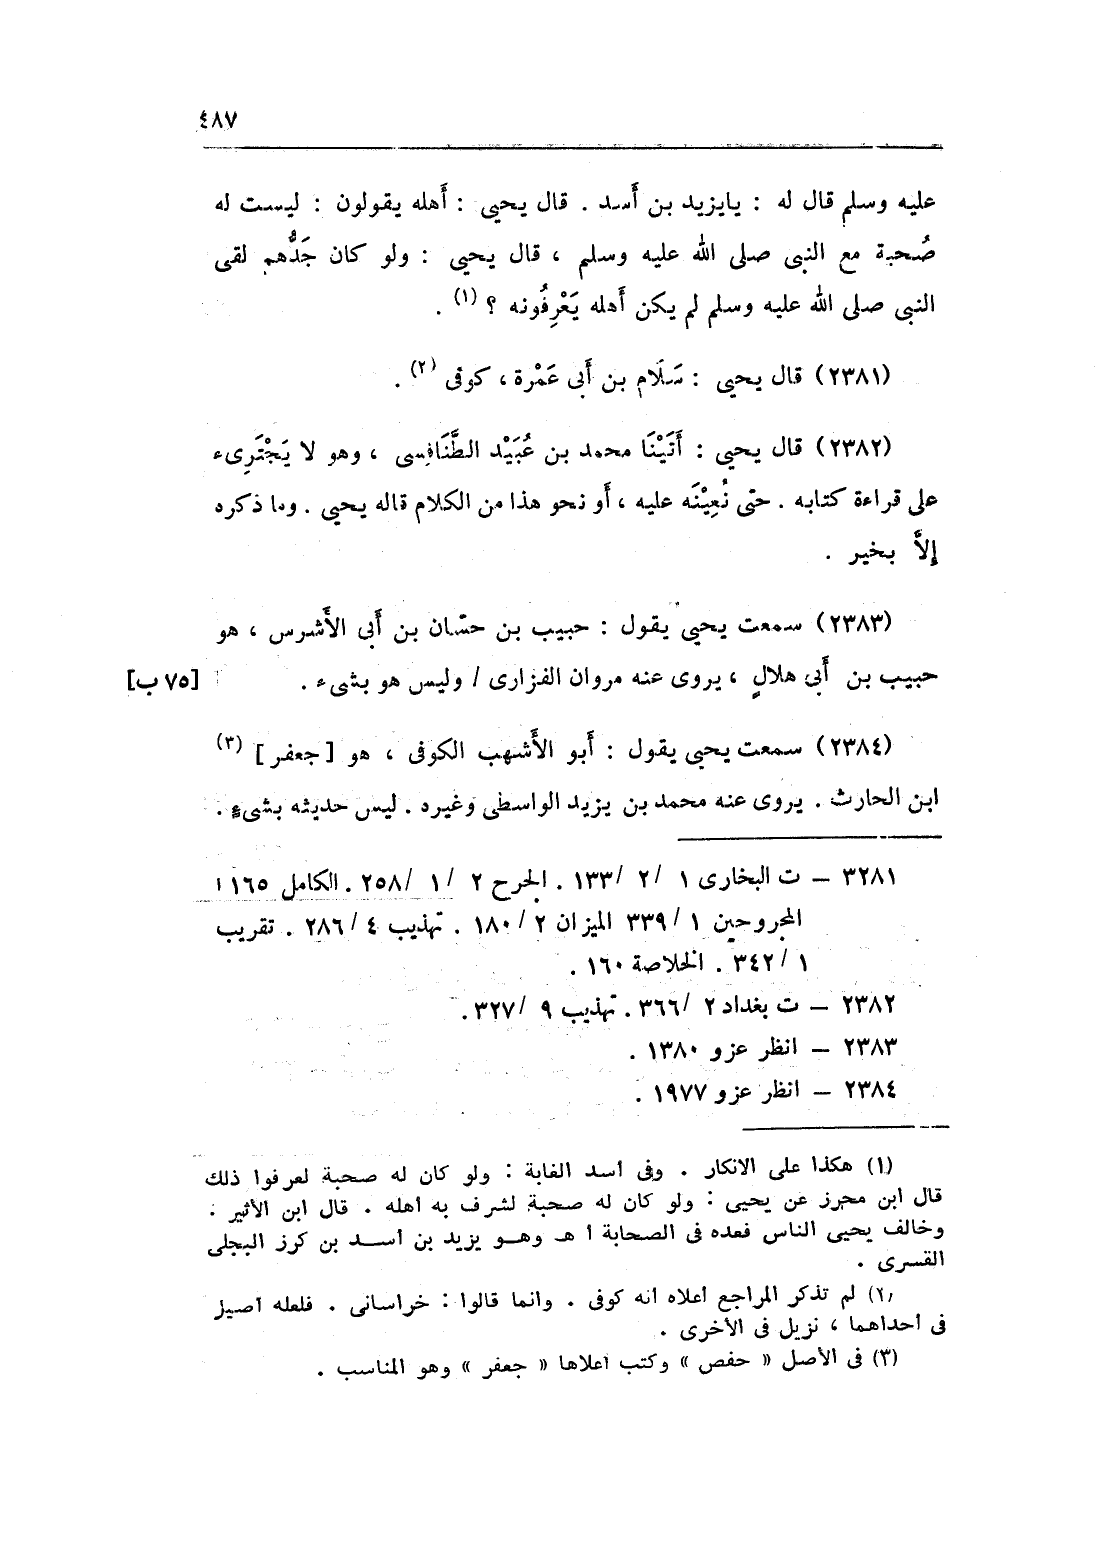 ٤٨٧
عليه وسلم قال له : يايزيد بن أَسد . قال يحيى : أَهله يقولون : ليست له
صُحبة مع النبى صلى الله عليه وسلم ، قال يحيى : ولو كان جَدُّهم لقى
النبى صلى الله عليه وسلم لم يكن أَهله يَعْرِفُونه ؟ (١) .
(٢٣٨١) قال يحيى : سَلَام بن أَبى عَمْرة ، كوفى (٢) .
(٢٣٨٢) قال يحيى : أَتَيْنَا محمد بن عُبَيْد الطَّنَافِسى ، وهو لا يَجْتَرِىء
على قراءة كتابه . حتى نُعِيْنَه عليه ، أَو نحو هذا من الكلام قاله يحيى . وما ذكره
إِلاَّ بخير .
(٢٣٨٣) سمعت يحيى يقول : حبيب بن حسّان بن أَبى الأَشرس ، هو
حبيب بن أَبى هلالٍ ، يروى عنه مروان الفزارى / وليس هو بشىء . [٧٥ ب]
(٢٣٨٤) سمعت يحيى يقول : أَبو الأَشهب الكوفى ، هو [جعفر] (٣)
ابن الحارث . يروى عنه محمد بن يزيد الواسطى وغيره . ليس حديثه بشىءٍ .
٣٢٨١ – ت البخارى ١ /٢ /١٣٣ . الجرح ٢ /١ /٢٥٨ . الكامل ١٦٥ ا
المجروحين ١ /٣٣٩ الميزان ٢ /١٨٠ . تهذيب ٤ /٢٨٦ . تقريب
١ /٣٤٢ . الخلاصة ١٦٠ .
٢٣٨٢ – ت بغداد ٢ /٣٦٦ . تهذيب ٩ /٣٢٧ .
٢٣٨٣ – انظر عزو ١٣٨٠ .
٢٣٨٤ – انظر عزو ١٩٧٧ .
(١) هكذا على الانكار . وفى أسد الغابة : ولو كان له صحبة لعرفوا ذلك
قال ابن محرز عن يحيى : ولو كان له صحبة لشرف به أهله . قال ابن الأثير :
وخالف يحيى الناس فعده فى الصحابة أ هـ وهو يزيد بن أسد بن كرز البجلى
القسرى .
(٢) لم تذكر المراجع أعلاه أنه كوفى . وانما قالوا : خراسانى . فلعله أصيل
فى أحداهما ، نزيل فى الأخرى .
(٣) فى الأصل « حفص » وكتب أعلاها « جعفر » وهو المناسب .